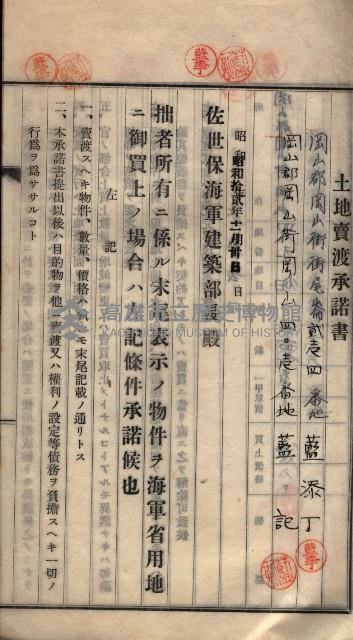 土地賣渡承諾書
岡山郡岡山街街尾崙貳壱四番地 藍添丁
岡山郡岡山街岡山四〇壱番地 藍記
昭和拾貳年十一月廿日
佐世保海軍建築部長殿
拙者所有ニ係ル末尾表示ノ物件ヲ海軍省用地
ニ御買上ノ場合ハ左記條件承諾候也
左記
一、賣渡スヘキ物件、數量、價格ハ總テ末尾記載ノ通リトス
二、本承諾書提出以後ハ目的物ヲ他ニ賣渡又ハ權利ノ設定等債務ヲ負擔スヘキ一切ノ
行爲ヲ爲ササルコト
高雄市立歷史博物館
KAOHSIUNG MUSEUM OF HISTORY